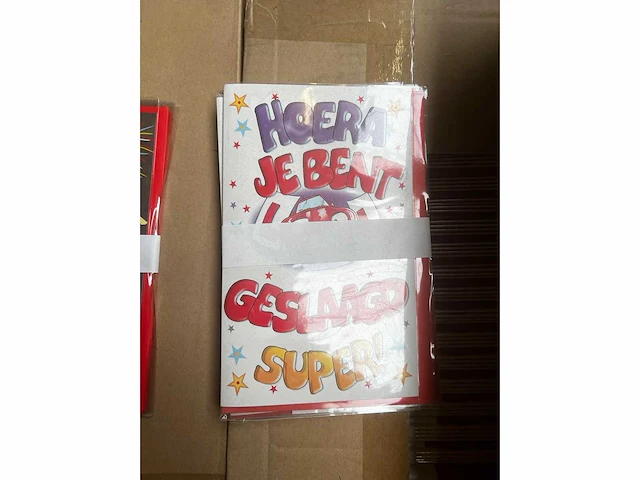 HOERA
JE BENT
GESLAAGD
SUPER!